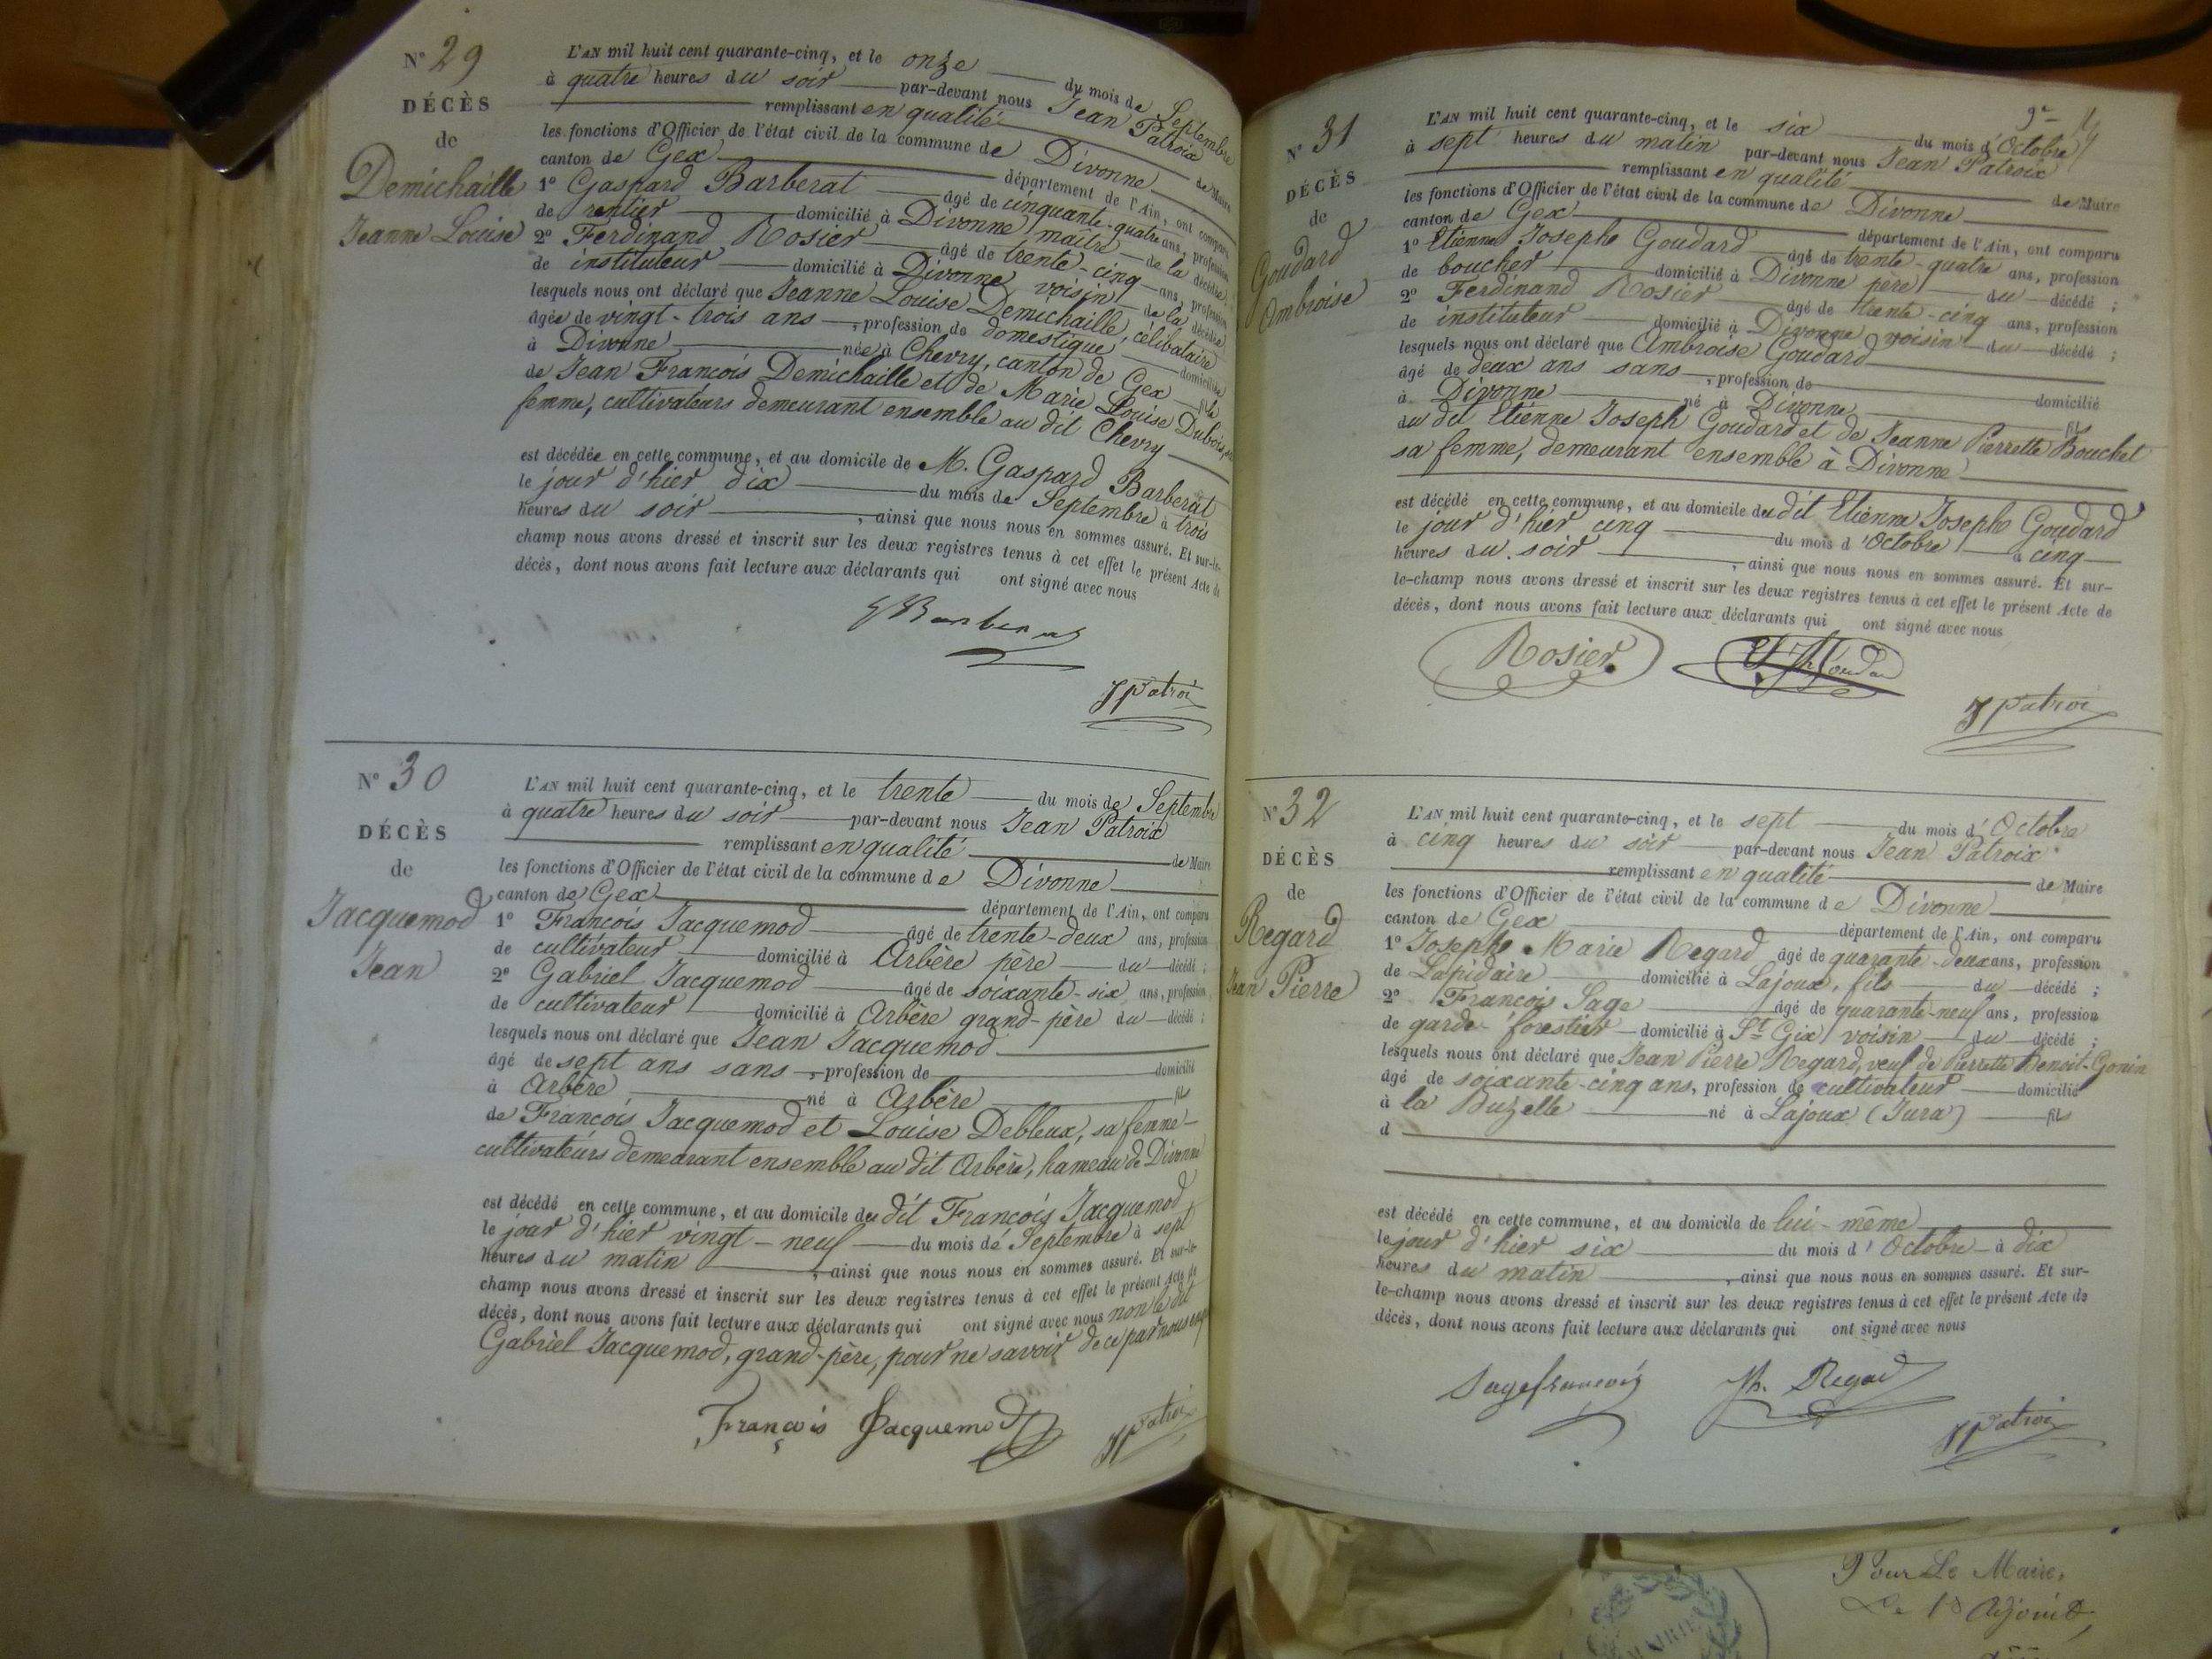 N° 29
DÉCÈS
de
Demichaille
Jeanne Louise
L'AN mil huit cent quarante-cinq, et le onze du mois de Septembre
à quatre heures du soir par-devant nous Jean Patroix
remplissant en qualité de Maire
les fonctions d'Officier de l'état civil de la commune de Divonne
canton de Gex département de l'Ain, ont comparu
1° Gaspard Barberat âgé de cinquante-quatre ans, profession
de rentier domicilié à Divonne maître de la décédée
2° Ferdinand Rosier âgé de trente-cinq ans, profession
de instituteur domicilié à Divonne voisin de la décédée
lesquels nous ont déclaré que Jeanne Louise Demichaille, célibataire
âgée de vingt-trois ans, profession de domestique domiciliée
à Divonne née à Chevry, canton de Gex fille
de Jean François Demichaille et de Marie Louise Dubois, sa
femme, cultivateurs demeurant ensemble au dit Chevry
est décédée en cette commune, et au domicile de M. Gaspard Barberat
le jour d'hier dix du mois de Septembre à trois
heures du soir, ainsi que nous nous en sommes assuré. Et sur-le-
champ nous avons dressé et inscrit sur les deux registres tenus à cet effet le présent Acte de
décès, dont nous avons fait lecture aux déclarants qui ont signé avec nous
JPatroi
N° 30
DÉCÈS
de
Jacquemod
Jean
L'AN mil huit cent quarante-cinq, et le trente du mois de Septembre
à quatre heures du soir par-devant nous Jean Patroix
remplissant en qualité de Maire
les fonctions d'Officier de l'état civil de la commune de Divonne
canton de Gex département de l'Ain, ont comparu
1° François Jacquemod âgé de trente-deux ans, profession
de cultivateur domicilié à Arbère père du décédé ;
2° Gabriel Jacquemod âgé de soixante-six ans, profession
de cultivateur domicilié à Arbère grand-père du décédé ;
lesquels nous ont déclaré que Jean Jacquemod
âgé de sept ans sans, profession de domicilié
à Arbère né à Arbère fils
de François Jacquemod et Louise Debleux, sa femme
cultivateurs demeurant ensemble au dit Arbère, hameau de Divonne
est décédé en cette commune, et au domicile du dit François Jacquemod
le jour d'hier vingt-neuf du mois de Septembre à sept
heures du matin, ainsi que nous nous en sommes assuré. Et sur-le-
champ nous avons dressé et inscrit sur les deux registres tenus à cet effet le présent Acte de
décès, dont nous avons fait lecture aux déclarants qui ont signé avec nous non le dit
Gabriel Jacquemod, grand-père, pour ne savoir de ce par nous
François Jacquemod
JPatroi
N° 31
DÉCÈS
de
Goudard
Ambroise
L'AN mil huit cent quarante-cinq, et le six du mois d'Octobre
à sept heures du matin par-devant nous Jean Patroix
remplissant en qualité de Maire
les fonctions d'Officier de l'état civil de la commune de Divonne
canton de Gex département de l'Ain, ont comparu
1° Etienne Joseph Goudard âgé de trente-quatre ans, profession
de boucher domicilié à Divonne père du décédé ;
2° Ferdinand Rosier âgé de trente-cinq ans, profession
de instituteur domicilié à Divonne voisin du décédé ;
lesquels nous ont déclaré que Ambroise Goudard
âgé de deux ans sans, profession de domicilié
à Divonne né à Divonne fils
du dit Etienne Joseph Goudard et de Jeanne Pierrette Bouchet
sa femme, demeurant ensemble à Divonne
est décédé en cette commune, et au domicile du dit Etienne Joseph Goudard
le jour d'hier cinq du mois d'Octobre à cinq
heures du soir, ainsi que nous nous en sommes assuré. Et sur-
le-champ nous avons dressé et inscrit sur les deux registres tenus à cet effet le présent Acte de
décès, dont nous avons fait lecture aux déclarants qui ont signé avec nous
Rosier
JPatroi
N° 32
DÉCÈS
de
Regard
Jean Pierre
L'AN mil huit cent quarante-cinq, et le sept du mois d'Octobre
à cinq heures du soir par-devant nous Jean Patroix
remplissant en qualité de Maire
les fonctions d'Officier de l'état civil de la commune de Divonne
canton de Gex département de l'Ain, ont comparu
1° Joseph Marie Regard âgé de quarante-deux ans, profession
de Lapidaire domicilié à Lajoux, fils du décédé ;
2° François Sage âgé de quarante-neuf ans, profession
de garde-forestier domicilié à St Gix voisin du décédé ;
lesquels nous ont déclaré que Jean Pierre Regard, veuf de Pierrette Benoit-Gonin
âgé de soixante-cinq ans, profession de cultivateur domicilié
à la Buzelle né à Lajoux (Jura) fils
d
est décédé en cette commune, et au domicile de lui-même
le jour d'hier six du mois d'Octobre à dix
heures du matin, ainsi que nous nous en sommes assuré. Et sur-
le-champ nous avons dressé et inscrit sur les deux registres tenus à cet effet le présent Acte de
décès, dont nous avons fait lecture aux déclarants qui ont signé avec nous
Sage francois
Jh. Regard
JPatroi
Pour Le Maire,
Le 1er Adjoint,
MAIRIE